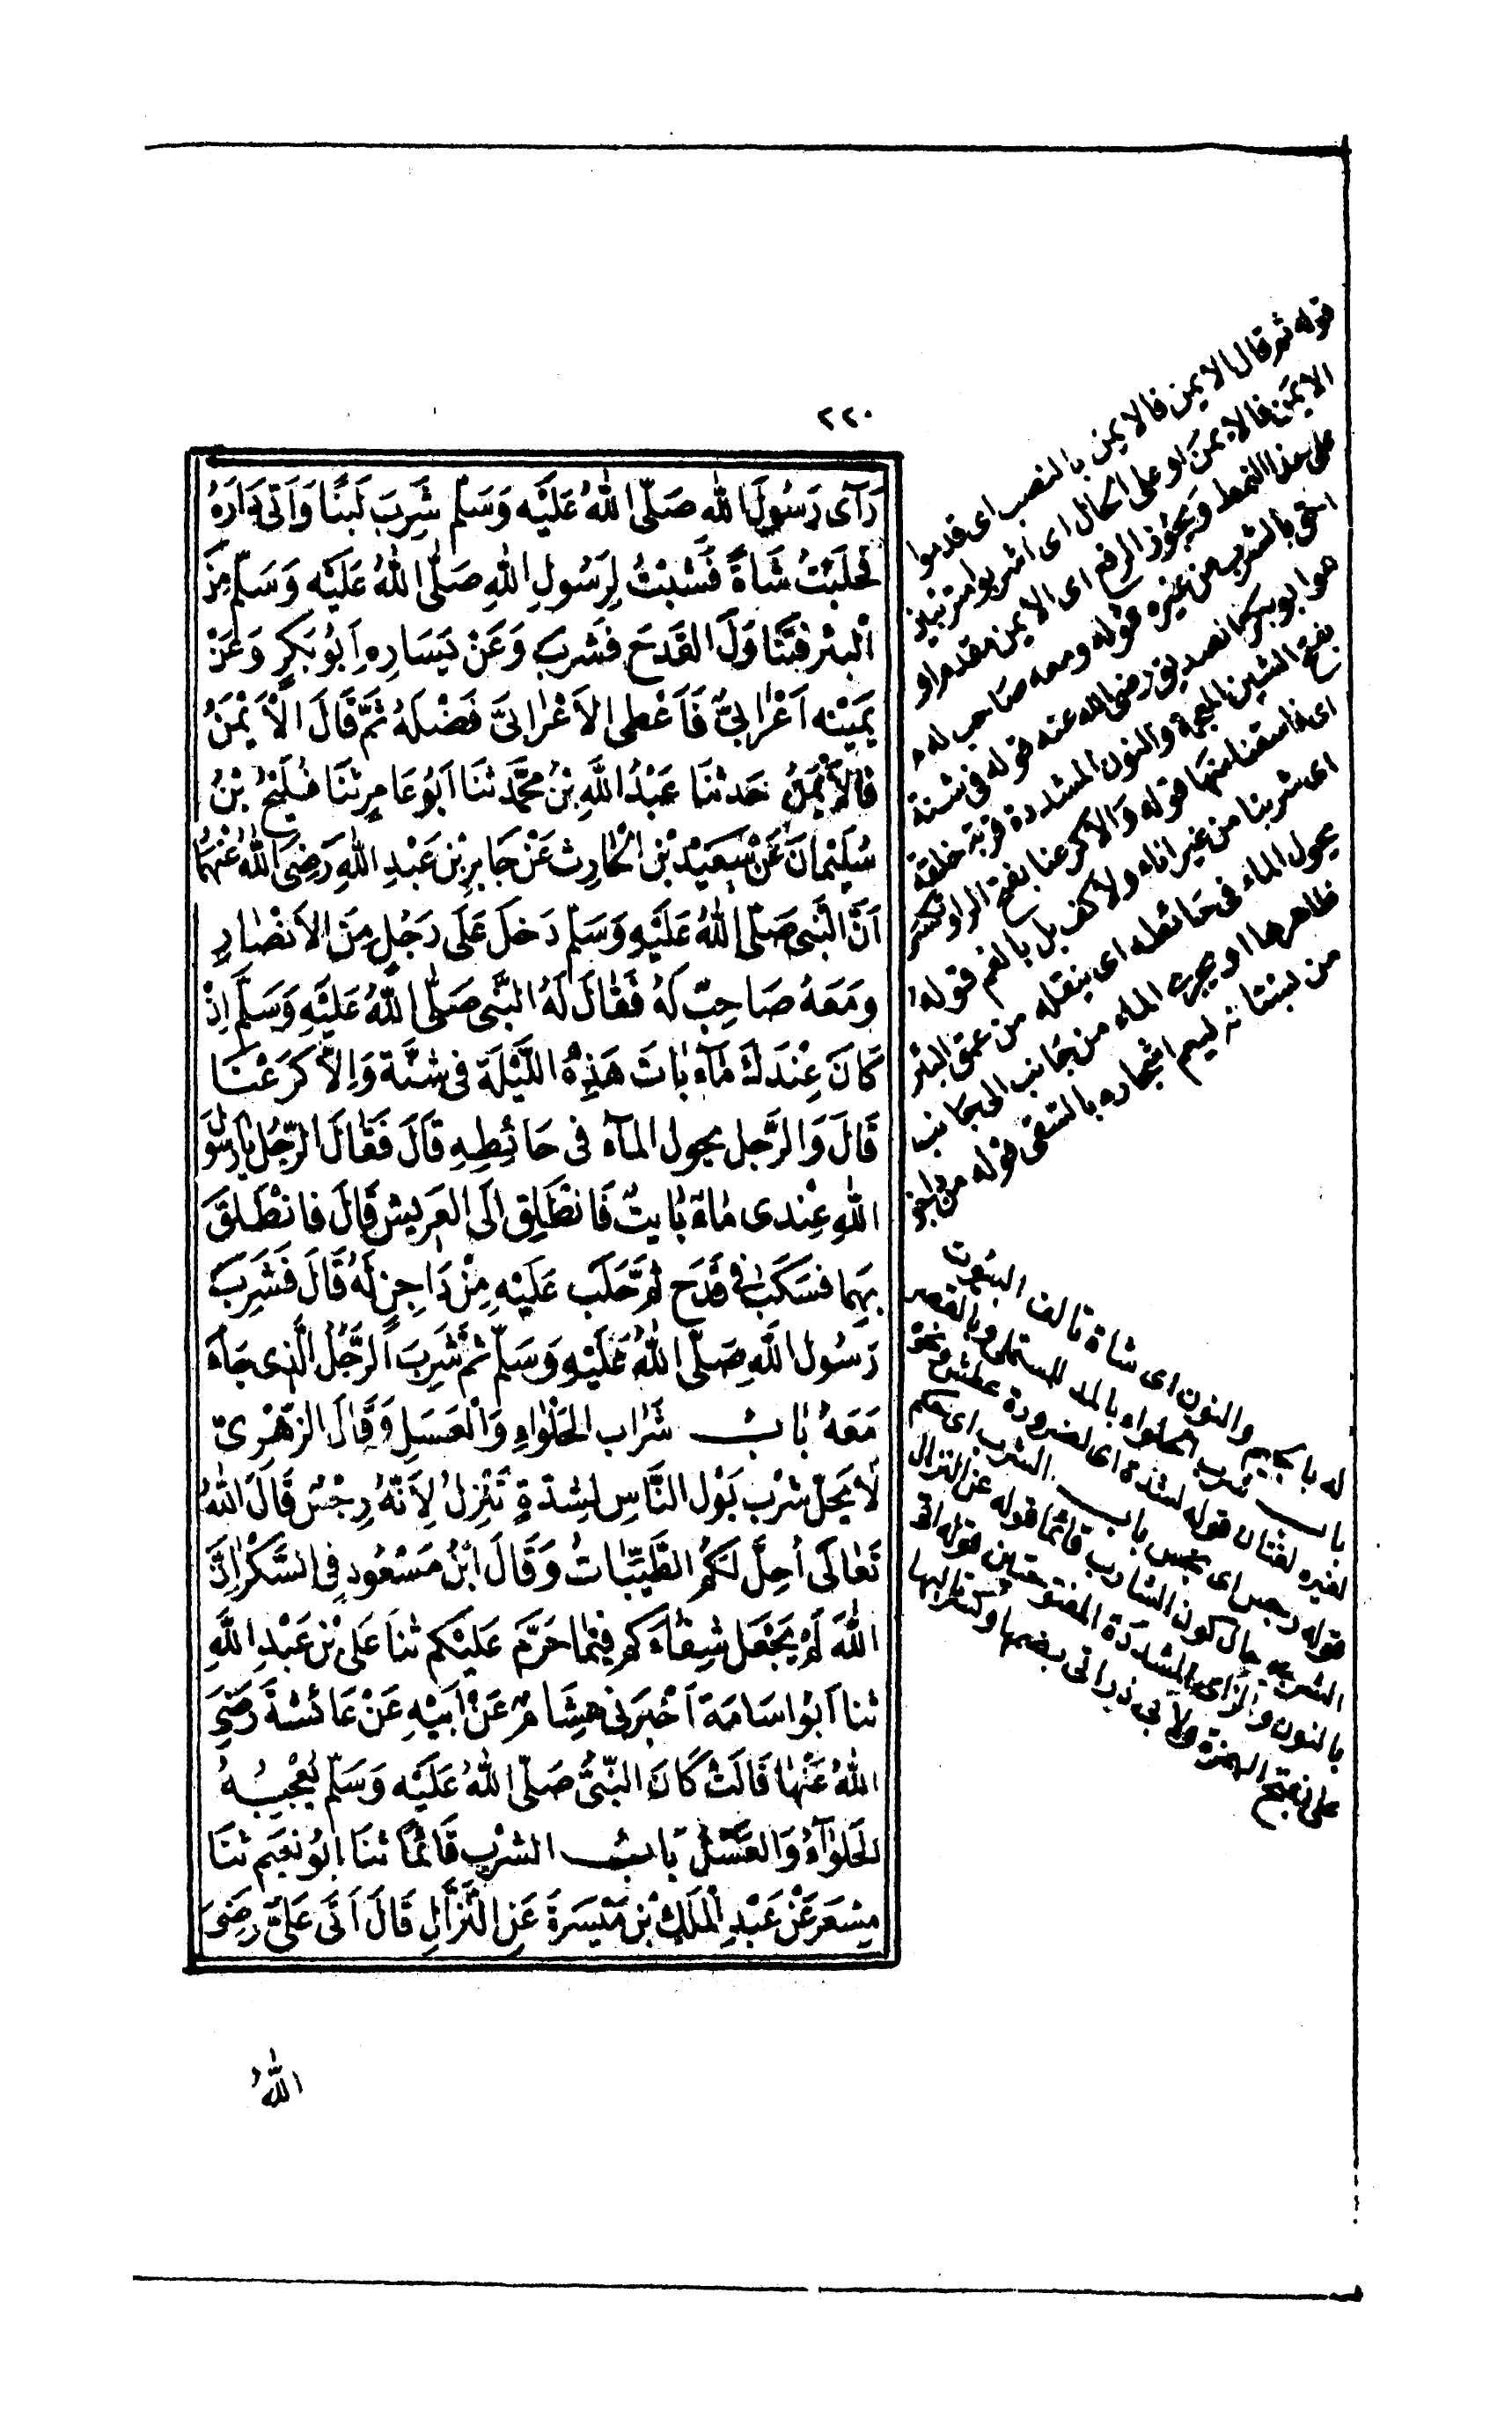 ٢٢٠
رَآى رَسُولَ الله صَلّى اللهُ عَلَيْه وَسَلّم شَرِبَ لَبَنًا وَاَتٰى دَارَهُ
فَحَلَبْتُ شَاةً فَشُبْتُ لِرَسُولِ اللهِ صَلَّى اللهُ عَلَيْه وَسَلّم مِنَ
الْبِئْر فَتَنَاوَلَ القَدَحَ فَشَربَ وَعَنْ يَسَارِه اَبُو بَكرٍ وَعَنْ
يَمَيْنه اَعْرَابِيٌّ فَاَعْطى الاَعْرَابىَّ فَضْلَهُ ثمَّ قَالَ الْاَيْمَنُ
فالْاَيْمَنُ حَدثنَا عَبْدُ اللَّهِ بْنُ محَمَّد ثنَا اَبُو عَامِر ثنَا فُلَيْحُ بْنُ
سُلَيْمانَ عَنْ سَعِيْد بْن الْحَارِث عَنْ جَابِر بْن عَبْدِ اللهِ رَضِىَ اللهُ عَنْهُمَا
اَنَّ النَّبى صَلّى اللهُ عَلَيْهِ وَسَلّم دَخَلَ عَلَى رَجُلٍ مِنَ الاَنْصَارِ
ومَعَهُ صَاحِبٌ لَهُ فَقَالَ لَهُ النَّبى صَلّى اللهُ عَلَيْهِ وَسَلّم اِنْ
كَانَ عِنْدَكَ مَآء بَاتَ هَذِهِ اللَّيْلَة فى شنَّة وَاِلاَّ كَرَعْنَا
قَالَ وَالرَّجل يحول المآء فى حَائِطِهِ قَالَ فَقَالَ الرَّجُل يَا رَسُولَ
اللهِ عِنْدى مَاء بَايتٌ فَانطَلِق اِلَى العَرِيش قَالَ فانْطَلَقَ
بهِمَا فسَكَبَ فى قَدَحٍ ثمَّ حَلَبَ عَلَيْهِ مِنْ دَاجِنٍ لَهُ قَالَ فَشَرِبَ
رَسُول اللَّهِ صَلّى اللهُ عَلَيْهِ وَسَلّم ثمَّ شَرِبَ الرَّجُل الَّذى جَآء
مَعَهُ بَاب شَرَاب الحَلْوَاءِ وَالْعَسَلِ وَقَالَ الزّهْرىّ
لَا يَحلّ شرْب بَوْل النَّاسِ لِشدّةٍ تَنْزِلُ لِاَنّهُ رِجْسٌ قَالَ اللهُ
تَعَالَى اُحِلَّ لَكُمُ الطَّيّبَاتُ وَقَالَ ابْنُ مَسْعُودٍ فِى السَّكَرِ اِنَّ
اللهَ لَمْ يَجْعَل شِفَاءَكم فيمَا حَرَّمَ عَلَيْكم ثنا عَلى بْن عَبْدِ اللَّهِ
ثنا اَبُو اسَامَة اَخْبَرَنى هِشَامٌ عَنْ اَبيْهِ عَنْ عَائشةَ رَضِىَ
اللهُ عَنْهَا قَالَتْ كَانَ النَّبىُّ صَلّى اللهُ عَلَيْه وَسَلّم يُعْجِبُهُ
الحَلْوَآءُ وَالعَسَلُ بَاب الشرْب قَائمًا ثنَا ابُو نعَيم ثنَا
مِسْعَر عَنْ عَبْدِ الْمَلِكِ بْن مَيْسَرةَ عَن النَّزَّالِ قَالَ اَتى عَلىٌّ رَضِىَ
اللهُ
قوله ثم قال الايمن فالايمن بالنصب اى قدموا
الايمن فالايمن او على الحال اى اشربوا مترتبين
على هذا النمط ويجوز الرفع اى الايمن مقدم او
احق بالشرب من غيره قوله ومعه صاحب له
هو ابو بكر الصديق رضى الله عنه قوله فى شنة
بفتح الشين المعجمة والنون المشددة قربة خلقة
اى فاسقنا منها قوله والا كرعنا بفتح الراء وتكسر
اى شربنا من غير اناء ولا كف بل بالفم قوله
يحول الماء فى حائطه اى ينقله من عمق البئر
ظاهرها او يجرى الماء من جانب الى جانب
من بستانه ليعم اشجاره بالسقى قوله من داجن
له بالجيم والنون اى شاة تالف البيوت
باب شرب الحلواء بالمد للمستملى وبالقصر
لغيره لغتان قوله لشدة اى لضرورة عطش ونحو
قوله رجس اى نجس باب الشرب اى حكم
الشرب حال كون الشارب قائما قوله عن النزال
بالنون والزاى المشددة المفتوحتين قوله اتى
على بفتح الهمزة ولابى ذر اتى بضمها وكسر تاليها